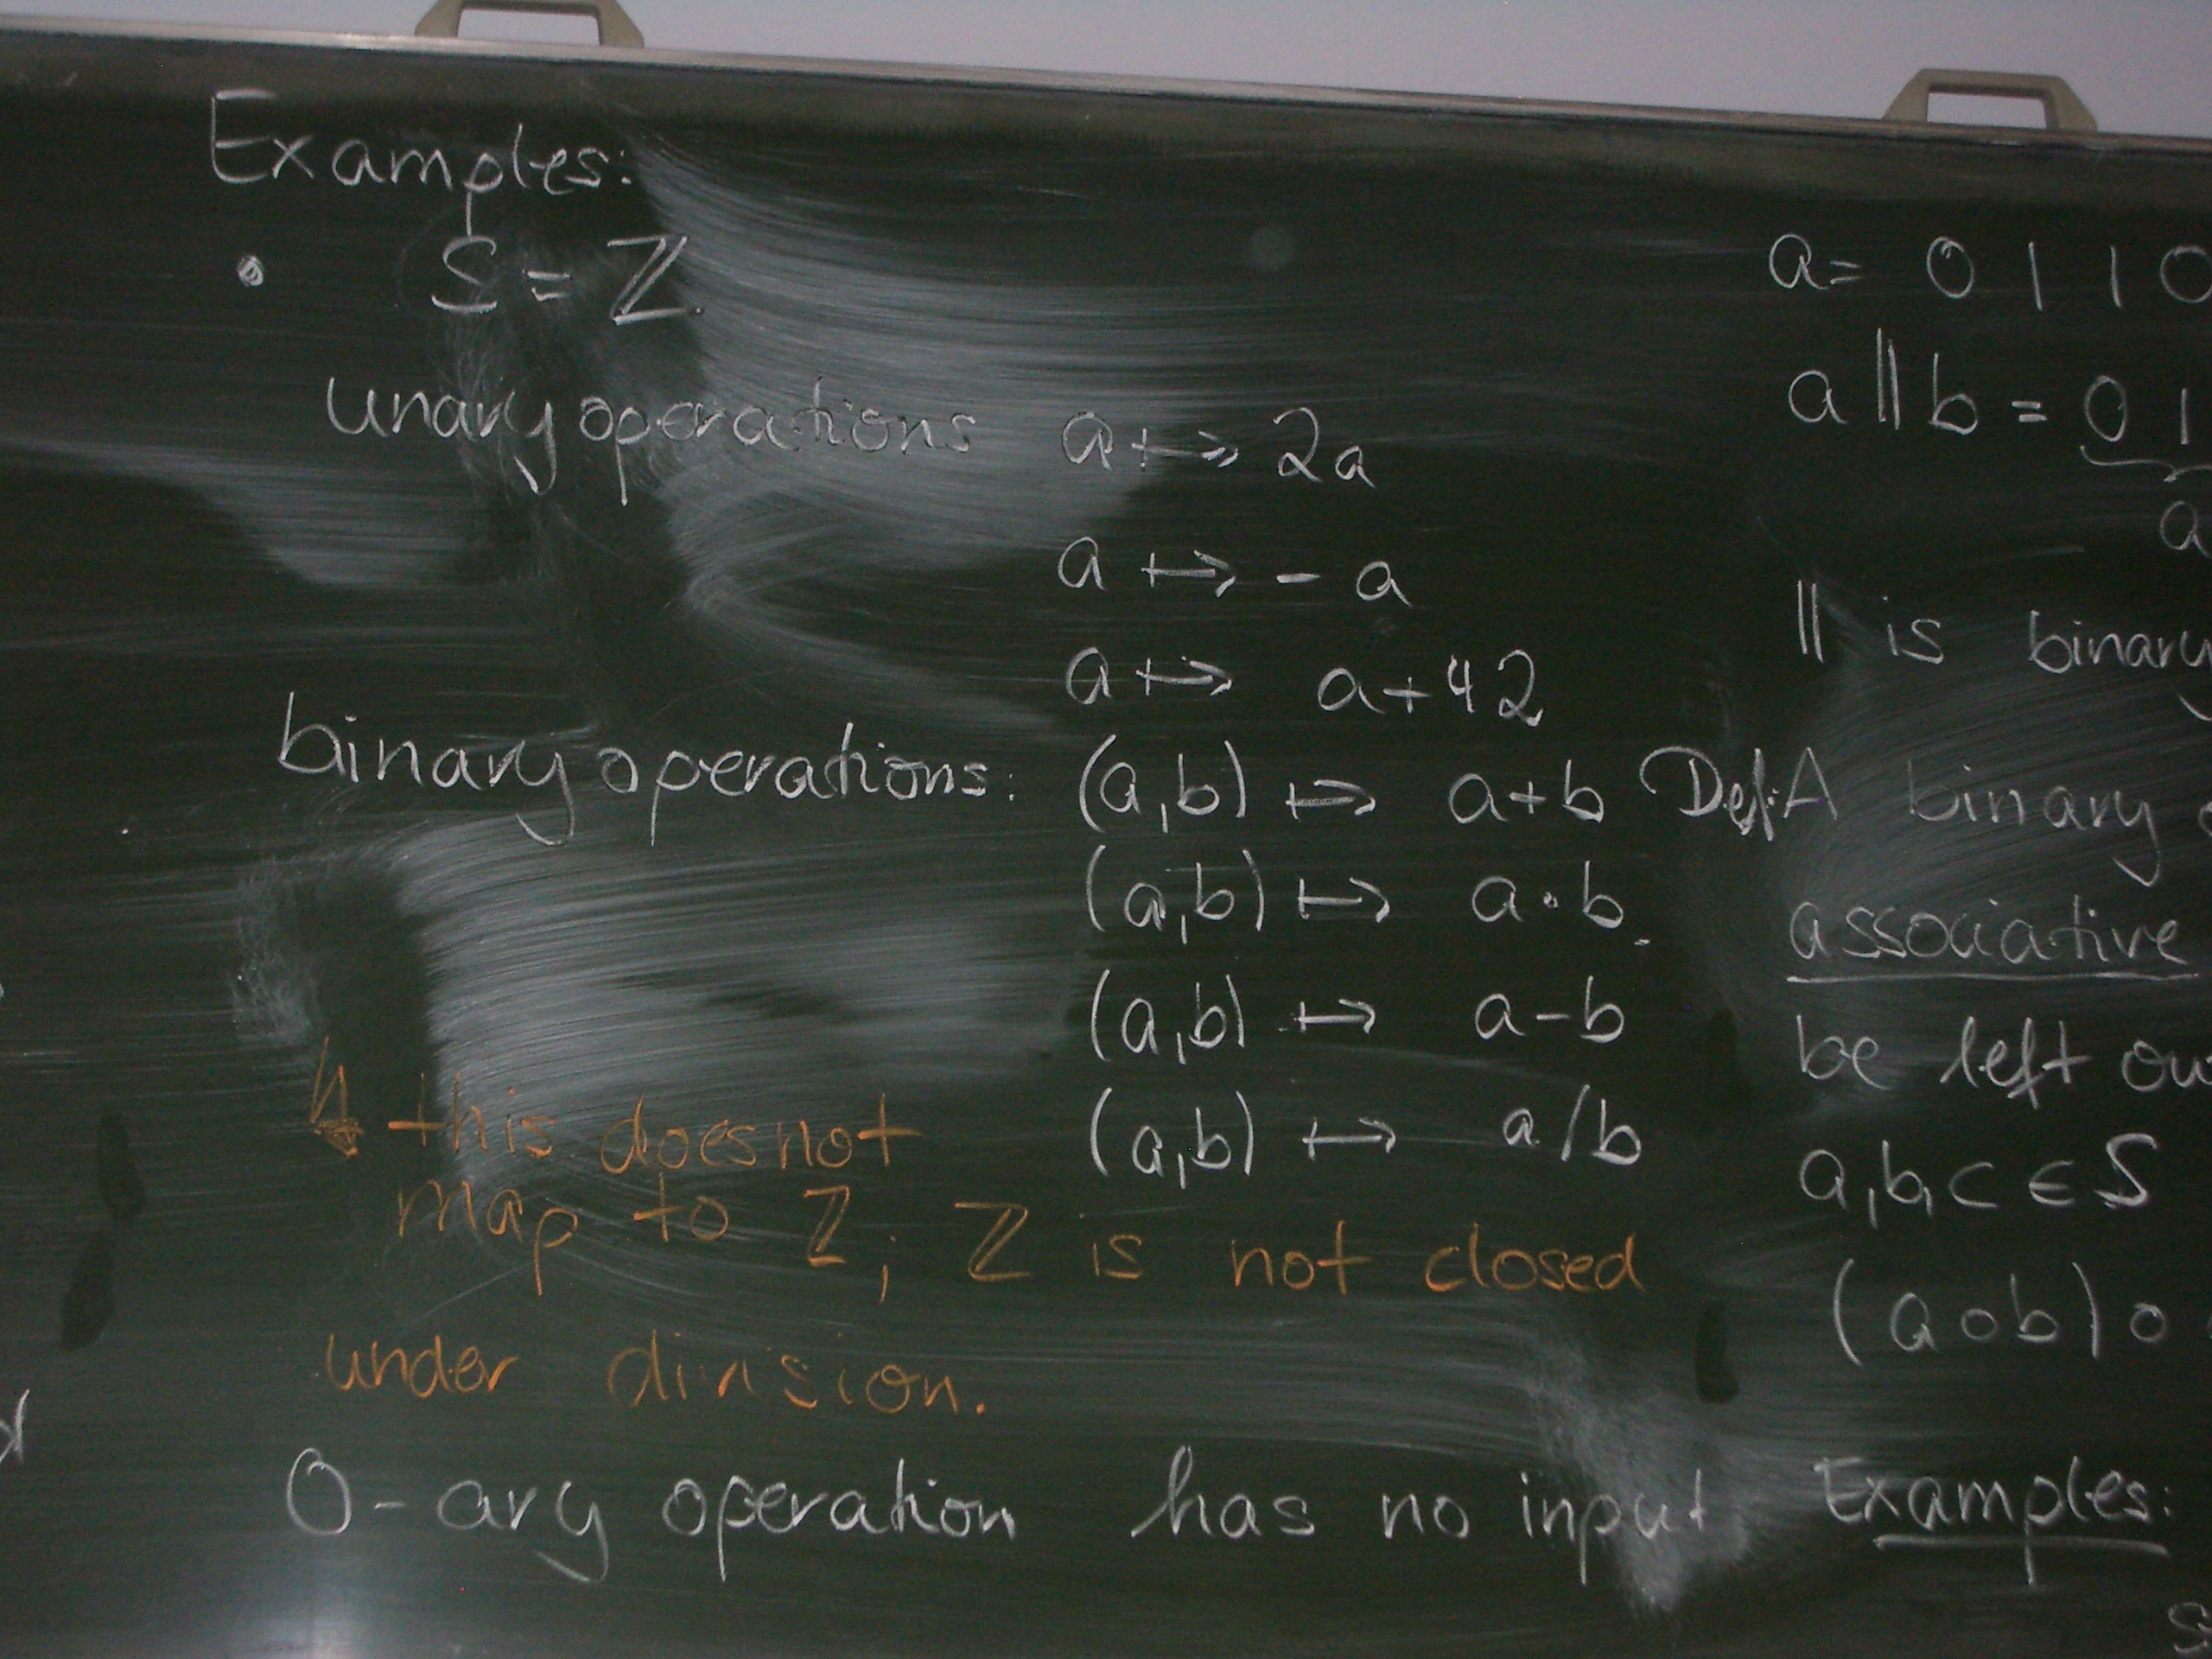 Examples:
• S = ℤ
unary operations a ↦ 2a
a ↦ - a
a ↦ a+42
binary operations: (a,b) ↦ a+b
(a,b) ↦ a·b
(a,b) ↦ a-b
(a,b) ↦ a/b
↯ this does not
map to ℤ; ℤ is not closed
under division.
0-ary operation has no input
a= 0 1 1 0
a || b = 0 1
a
|| is binary
Def: A binary
associative
be left
a, b, c ∈ S
(a o b) o
Examples: